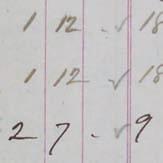 1 12 . ✓ 18
1 12 ✓ 18
2 7 - ✓ 9